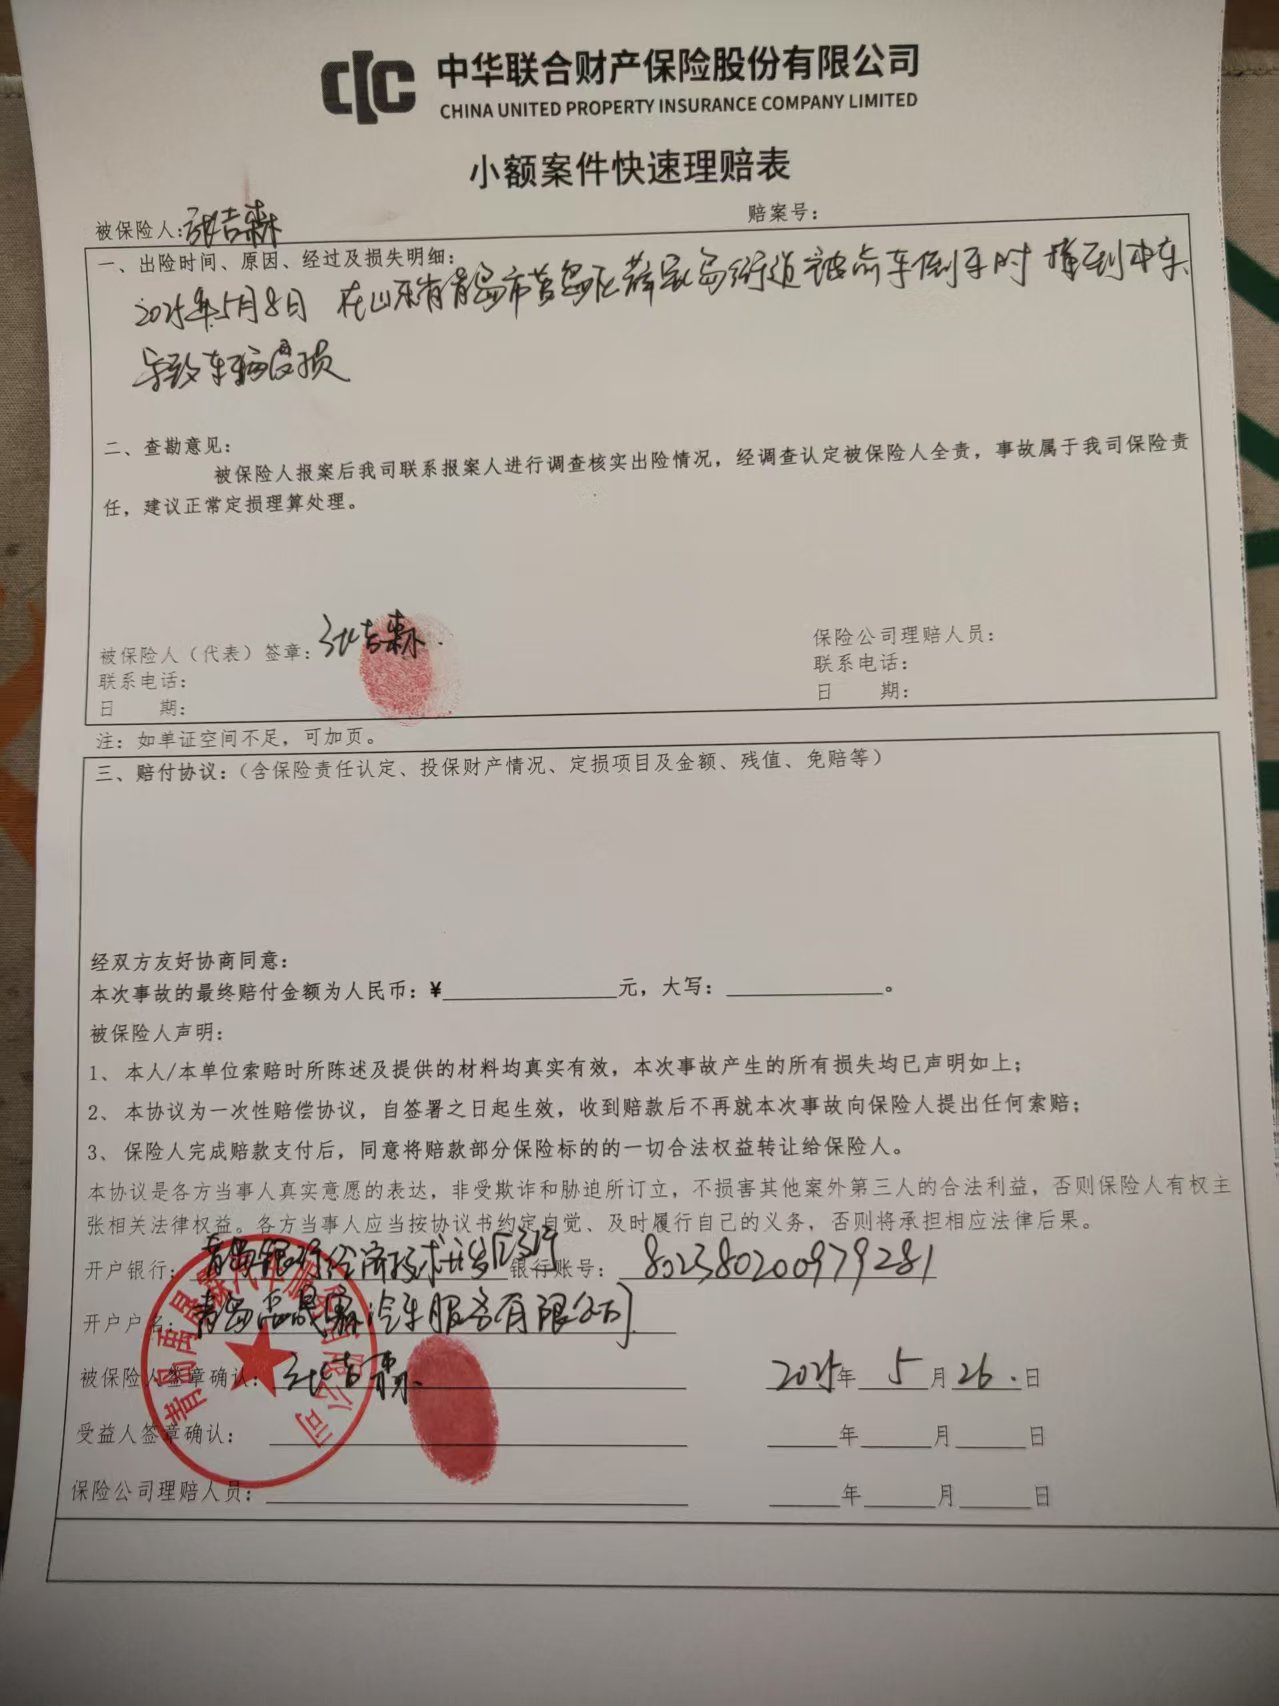 CIC 中华联合财产保险股份有限公司
CHINA UNITED PROPERTY INSURANCE COMPANY LIMITED
小额案件快速理赔表
被保险人:张吉森 赔案号:
一、出险时间、原因、经过及损失明细:
2025年5月8日 在山东省青岛市黄岛区薛家岛街道 车倒车时 撞到 车、
导致车辆受损
二、查勘意见:
被保险人报案后我司联系报案人进行调查核实出险情况,经调查认定被保险人全责,事故属于我司保险责
任,建议正常定损理算处理。
被保险人(代表)签章:张吉森. 保险公司理赔人员:
联系电话: 联系电话:
日 期: 日 期:
注:如单证空间不足,可加页。
三、赔付协议:(含保险责任认定、投保财产情况、定损项目及金额、残值、免赔等)
经双方友好协商同意:
本次事故的最终赔付金额为人民币:¥____元,大写:____。
被保险人声明:
1、本人/本单位索赔时所陈述及提供的材料均真实有效,本次事故产生的所有损失均已声明如上;
2、本协议为一次性赔偿协议,自签署之日起生效,收到赔款后不再就本次事故向保险人提出任何索赔;
3、保险人完成赔款支付后,同意将赔款部分保险标的的一切合法权益转让给保险人。
本协议是各方当事人真实意愿的表达,非受欺诈和胁迫所订立,不损害其他案外第三人的合法利益,否则保险人有权主
张相关法律权益。各方当事人应当按协议书约定自觉、及时履行自己的义务,否则将承担相应法律后果。
开户银行:青岛银行经济技术开发区支行 银行账号:802380200979281
开户户名:青岛禹晟霖汽车服务有限公司
青岛禹晟霖汽车服务有限公司
被保险人签章确认:张吉森. 2025年5月26.日
受益人签章确认: 年 月 日
保险公司理赔人员: 年 月 日